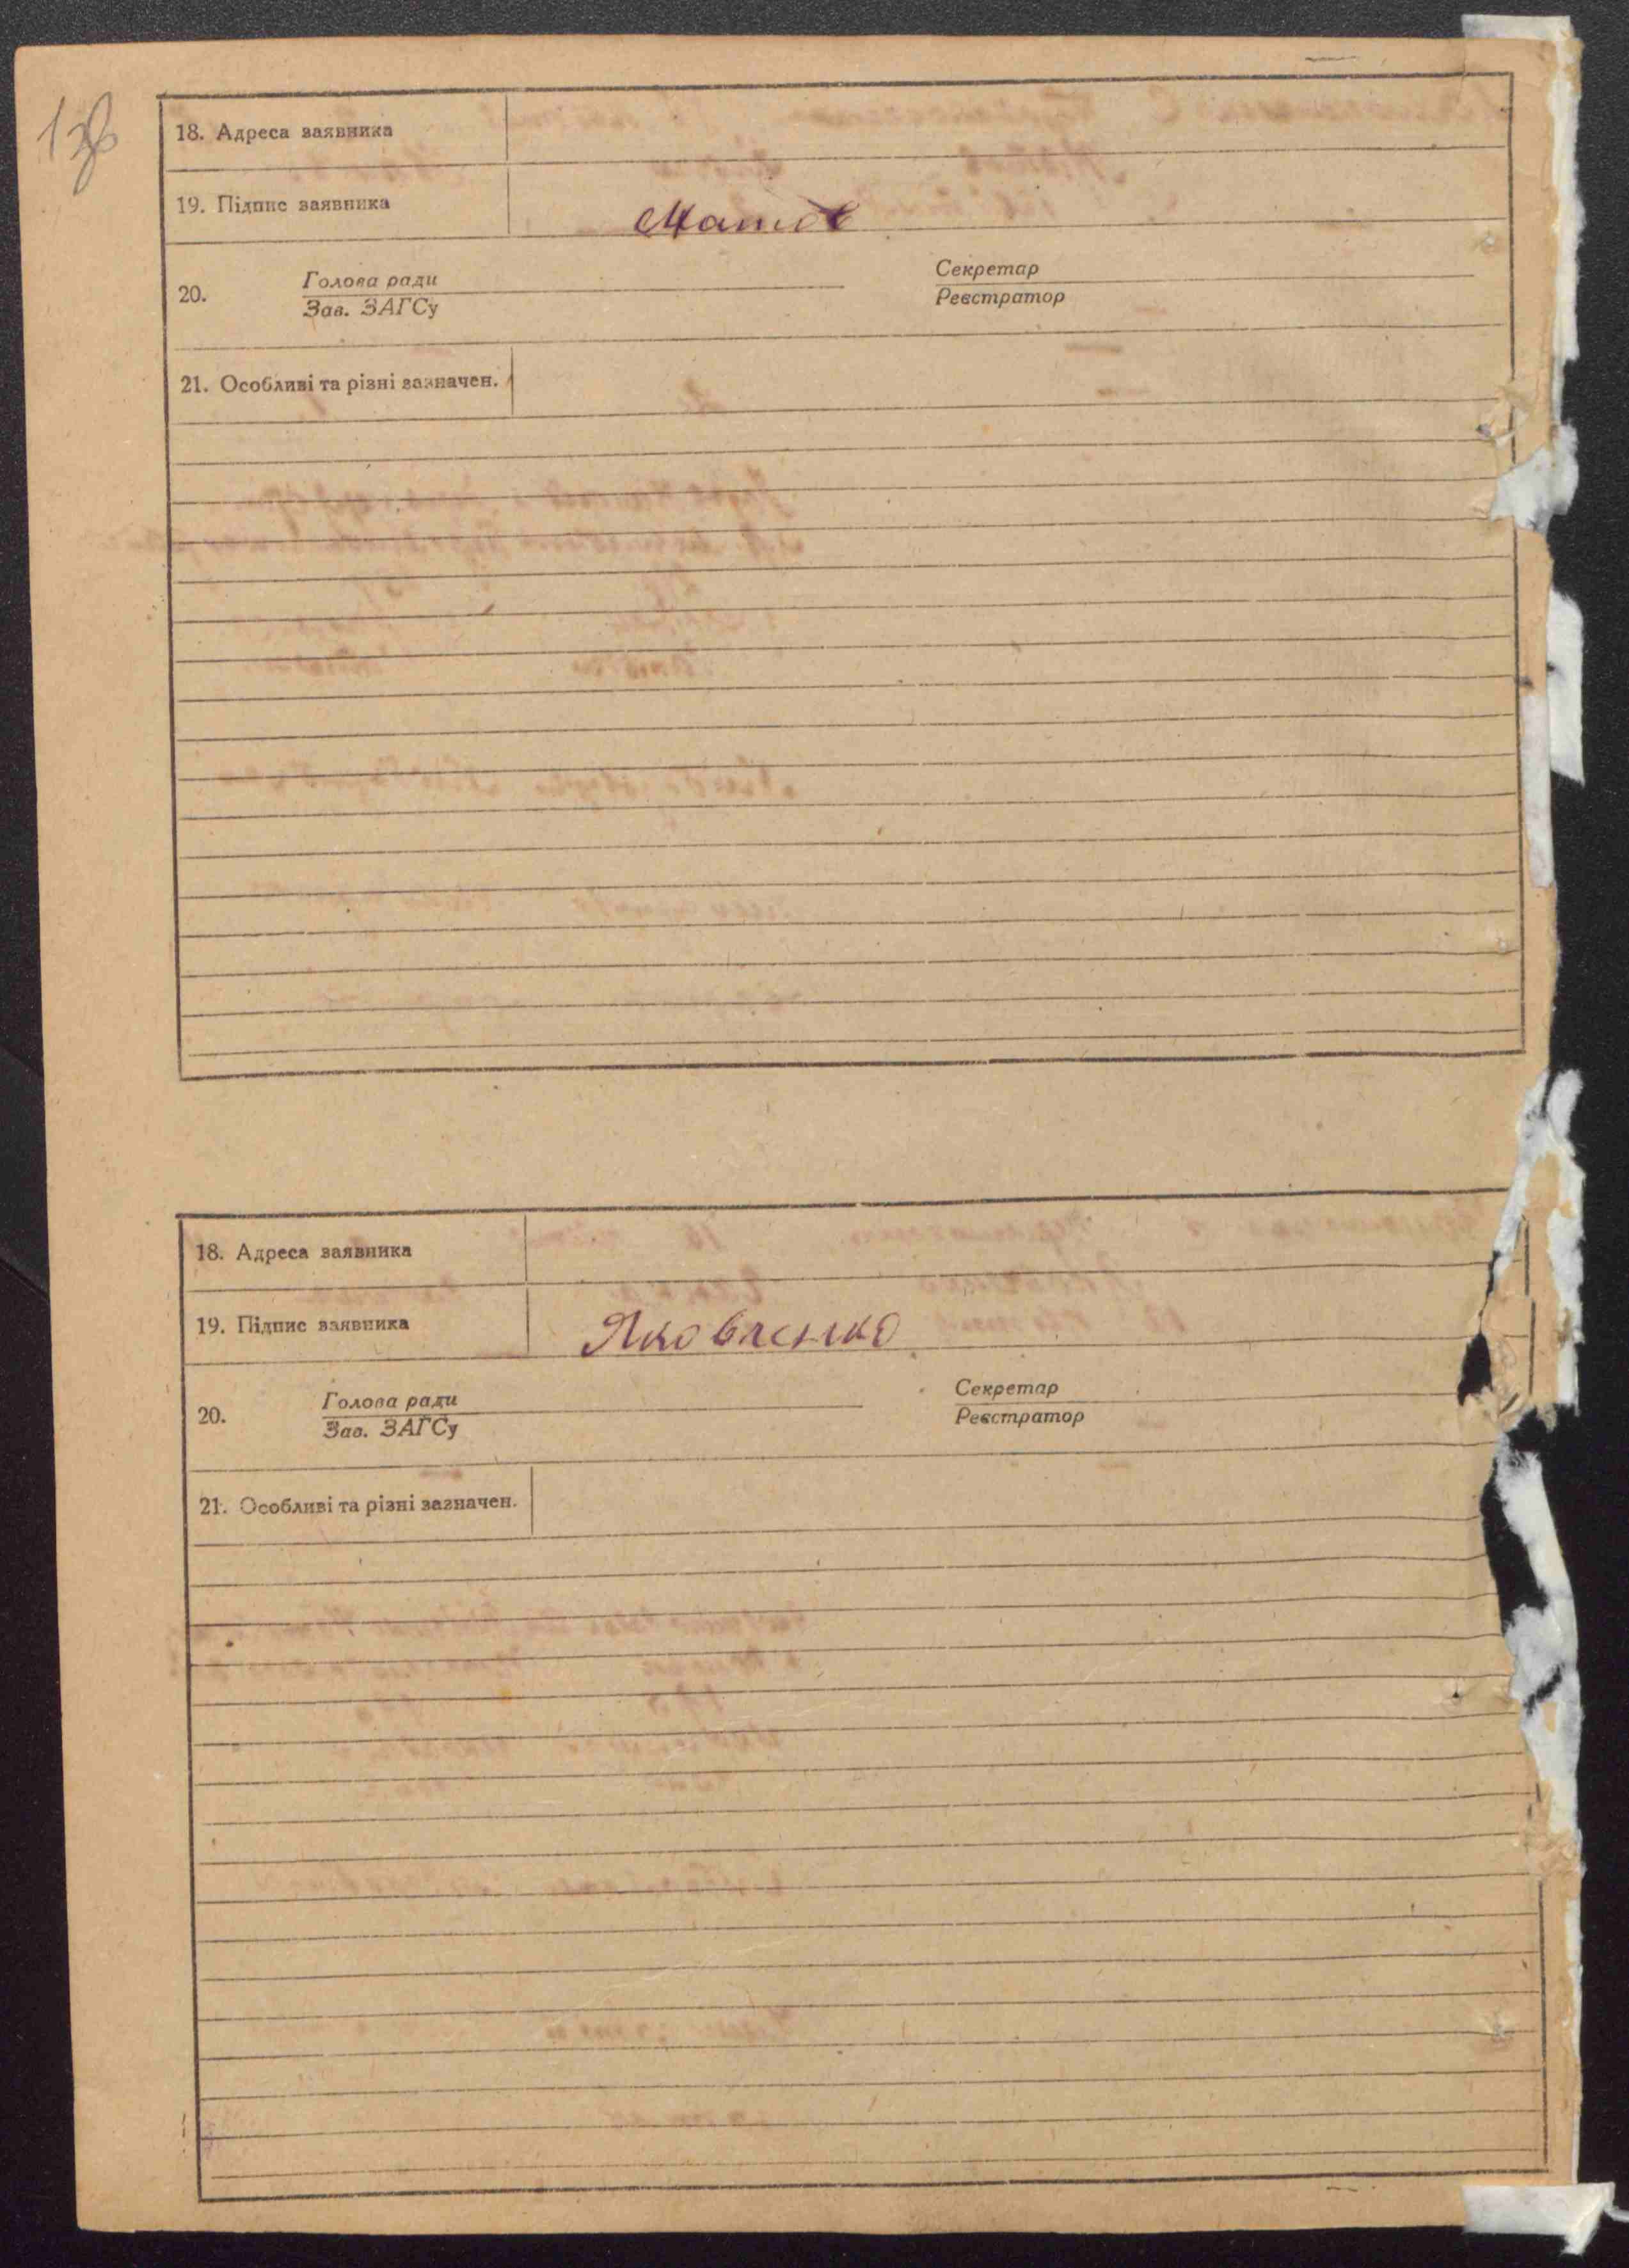 18. Адреса заявника
19. Підпис заявника
20. Голова ради Секретар
Зав. ЗАГСу Реєстратор
21. Особливі та різні зазначен.
18. Адреса заявника
19. Підпис заявника Яковленко
20. Голова ради Секретар
Зав. ЗАГСу Реєстратор
21. Особливі та різні зазначен.